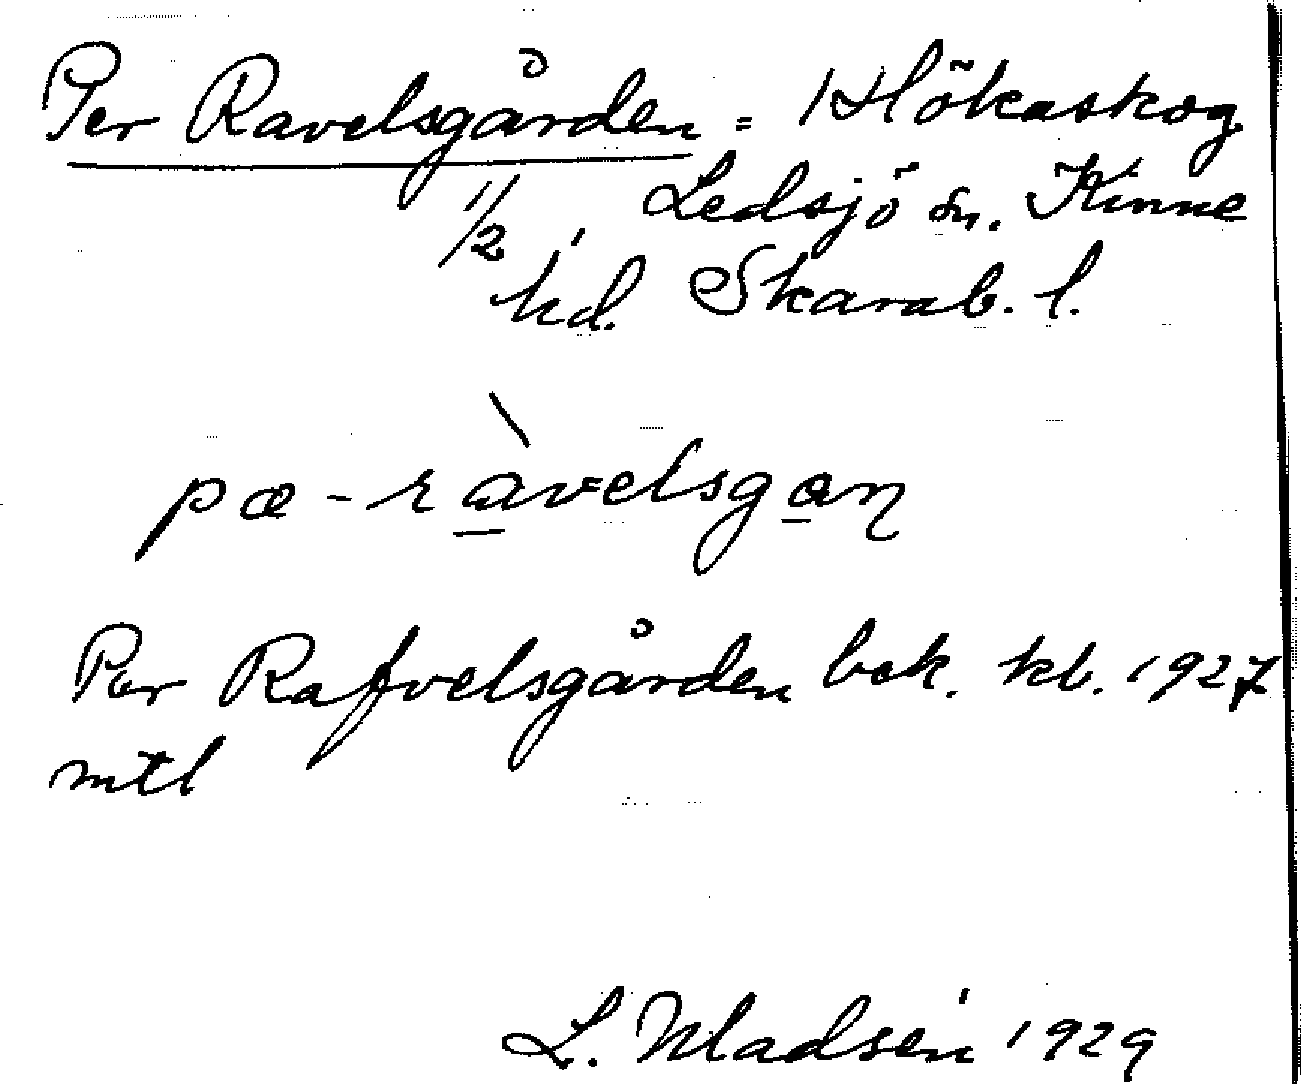 Per Ravelsgården = 1 Hökaskog
1/2, Ledsjö sn. Kinne
hd. Skarab. l.
pæ-ràvelsgaṇ
Per Rafvelsgården bek. kb. 1927
mtl
L. Madsén 1929